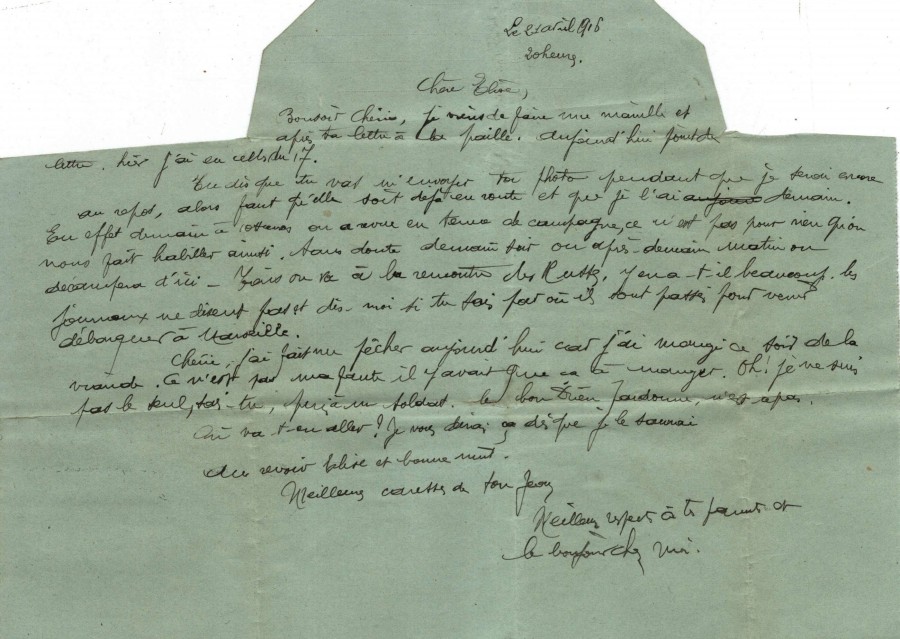 Le 21 avril 1916
20 heures.
Chère Elise,
Bonsoir Chérie, je viens de faire une manille et
après ta lettre à la paille. Aujourd'hui point de
lettre. hier j'ai eu celle du 17.
Tu dis que tu vas m'envoyer ta photo pendant que je serai encore
au repos, alors faut qu'elle soit déjà en route et que je l'ai demain.
En effet demain à on a revue en tenue de campagne, ce n'est pas pour rien qu'on
nous fait habiller ainsi. Sans doute demain soir ou après-demain matin on
décampera d'ici - on va à la rencontre des Russes, y en a-t-il beaucoup. les
journaux ne disent pas et dis-moi si tu sais par où ils sont passés pour venir
débarquer à Marseille.
Chérie, j'ai fait un pêcher aujourd'hui car j'ai mangé ce soir de la
viande. Ce n'est pas ma faute il y avait que ça à manger. Oh! je ne suis
pas le seul, sais-tu, un soldat. le bon Dieu pardonne, n'est-ce pas.
Où va-t-on aller? Je vous dirai ça dès que je le saurai
Au revoir Elise et bonne nuit.
Meilleures caresses de ton Jean
Meilleurs respects à tes parents et
le bonjour chez moi.